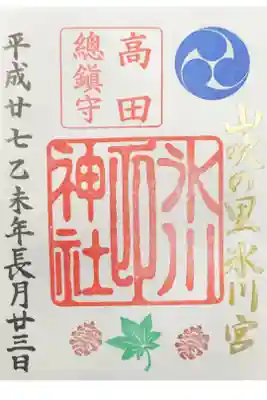 山吹の里 氷川宮
高田
總鎮守
氷川
神社
平成廿七乙未年長月廿三日